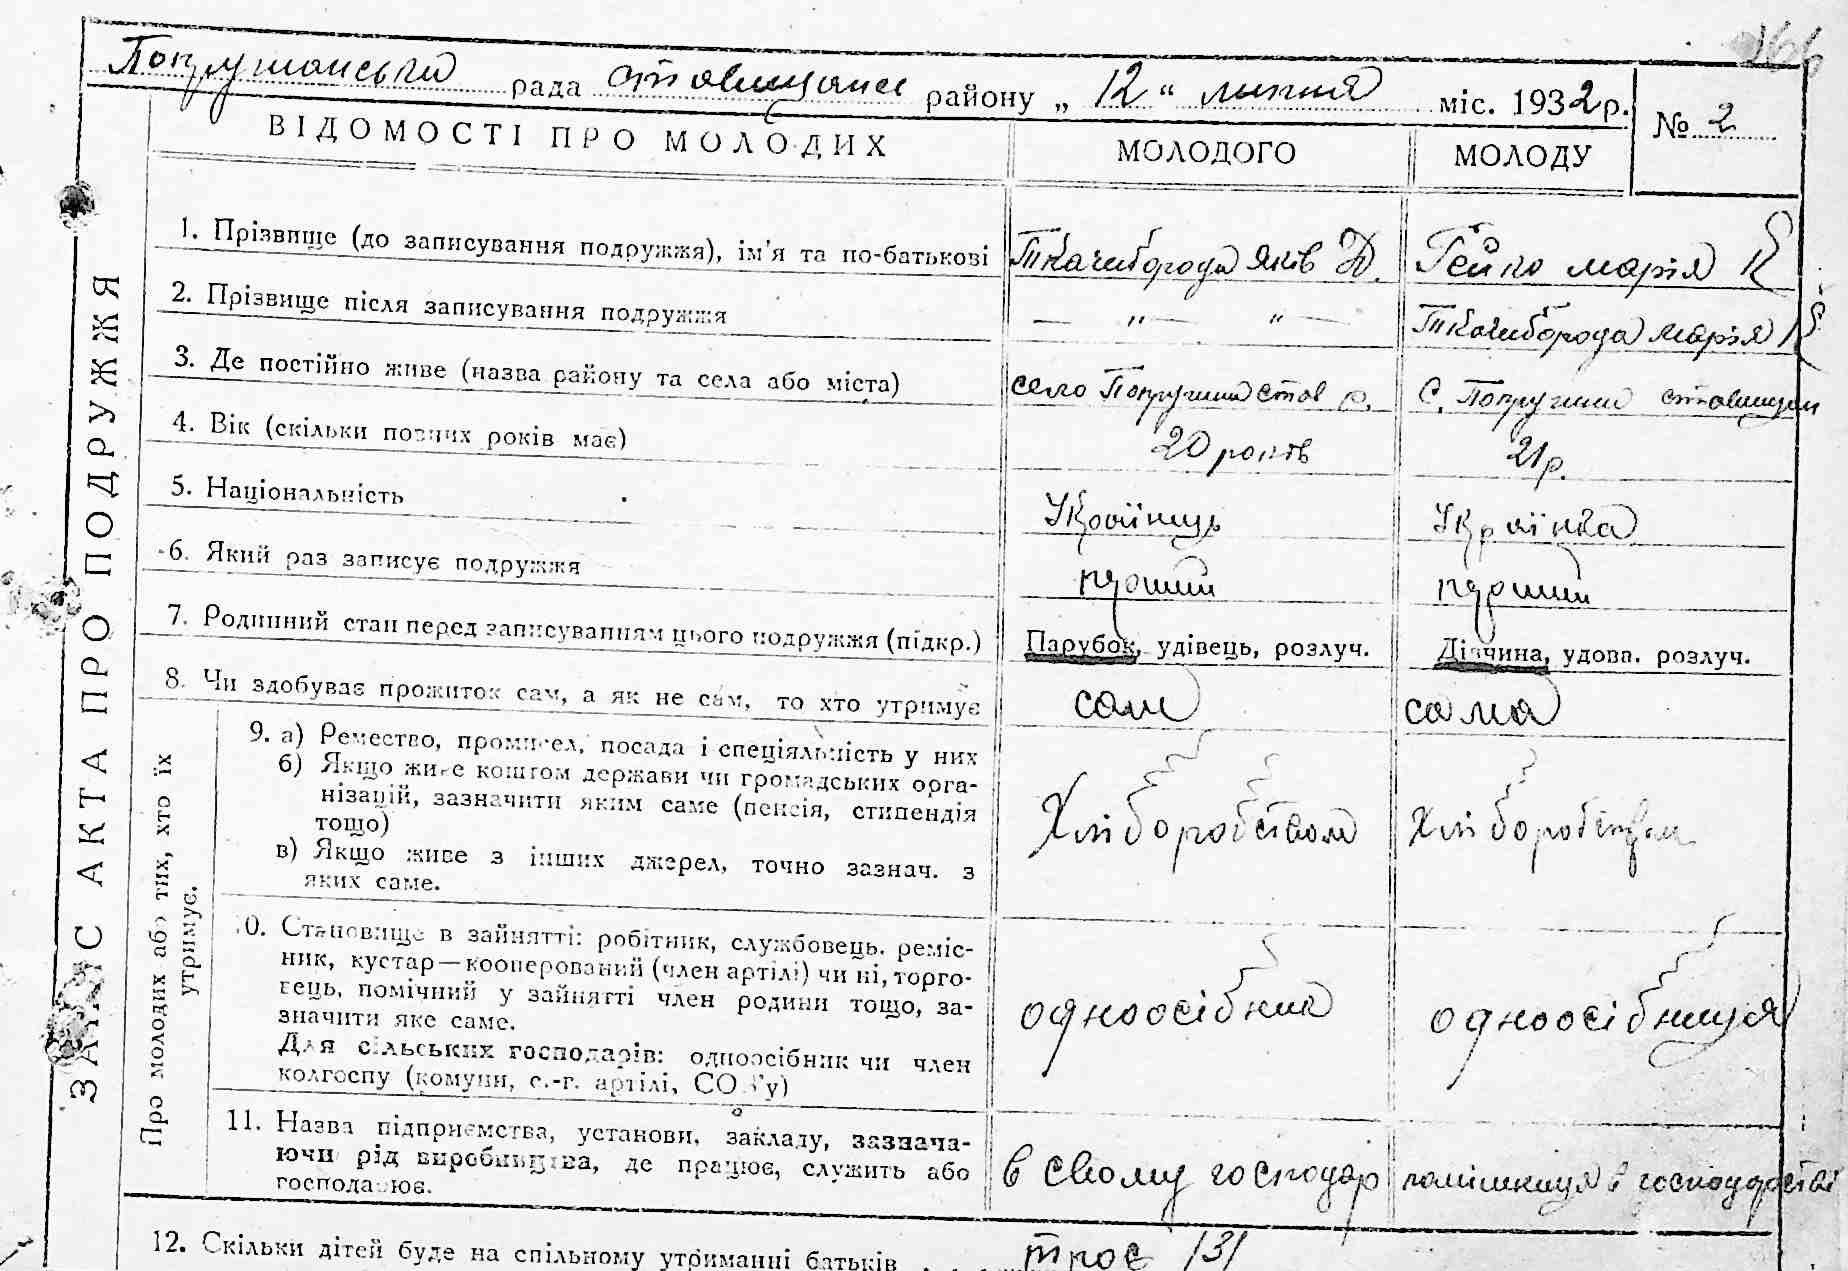 166
Попружанська рада ставищанс району „ 12 “ липня міс. 1932 р. № 2
ВІДОМОСТІ ПРО МОЛОДИХ МОЛОДОГО МОЛОДУ
ЗАПИС АКТА ПРО ПОДРУЖЖЯ
1. Прізвище (до записування подружжя), ім’я та по-батькові Ткачиборода Яків Д. Гейко Марія К
2. Прізвище після записування подружжя — „ — „ — Ткачиборода Марія К
3. Де постійно живе (назва району та села або міста) село Попружни став р. с. Попружни ставищан
4. Вік (скільки повних років має) 20 років 21 р.
5. Національність Українець Українка
6. Який раз записує подружжя перший перший
7. Родинний стан перед записуванням цього подружжя (підкр.) Парубок, удівець, розлуч. Дівчина, удова. розлуч.
8. Чи здобуває прожиток сам, а як не сам, то хто утримує сам сама
Про молодих або тих, хто їх
утримує.
9. а) Ремество, промисел, посада і спеціяльність у них
б) Якщо живе коштом держави чи громадських орга-
нізацій, зазначити яким саме (пенсія, стипендія
тощо) Хліборобством Хліборобством
в) Якщо живе з інших джерел, точно зазнач. з
яких саме.
10. Становище в зайнятті: робітник, службовець. реміс-
ник, кустар—кооперований (член артілі) чи ні, торго-
вець, помічний у зайнятті член родини тощо, за-
значити яке саме. одноосібник одноосібниця
Для сільських господарів: одноосібник чи член
колгоспу (комуни, с.-г. артілі, СОЗ'у)
11. Назва підприємства, установи, закладу, зазнача-
ючи рід виробництва, де працює, служить або в свому господар помішниця в господарстві
господарює.
12. Скільки дітей буде на спільному утриманні батьків . . . троє /3/